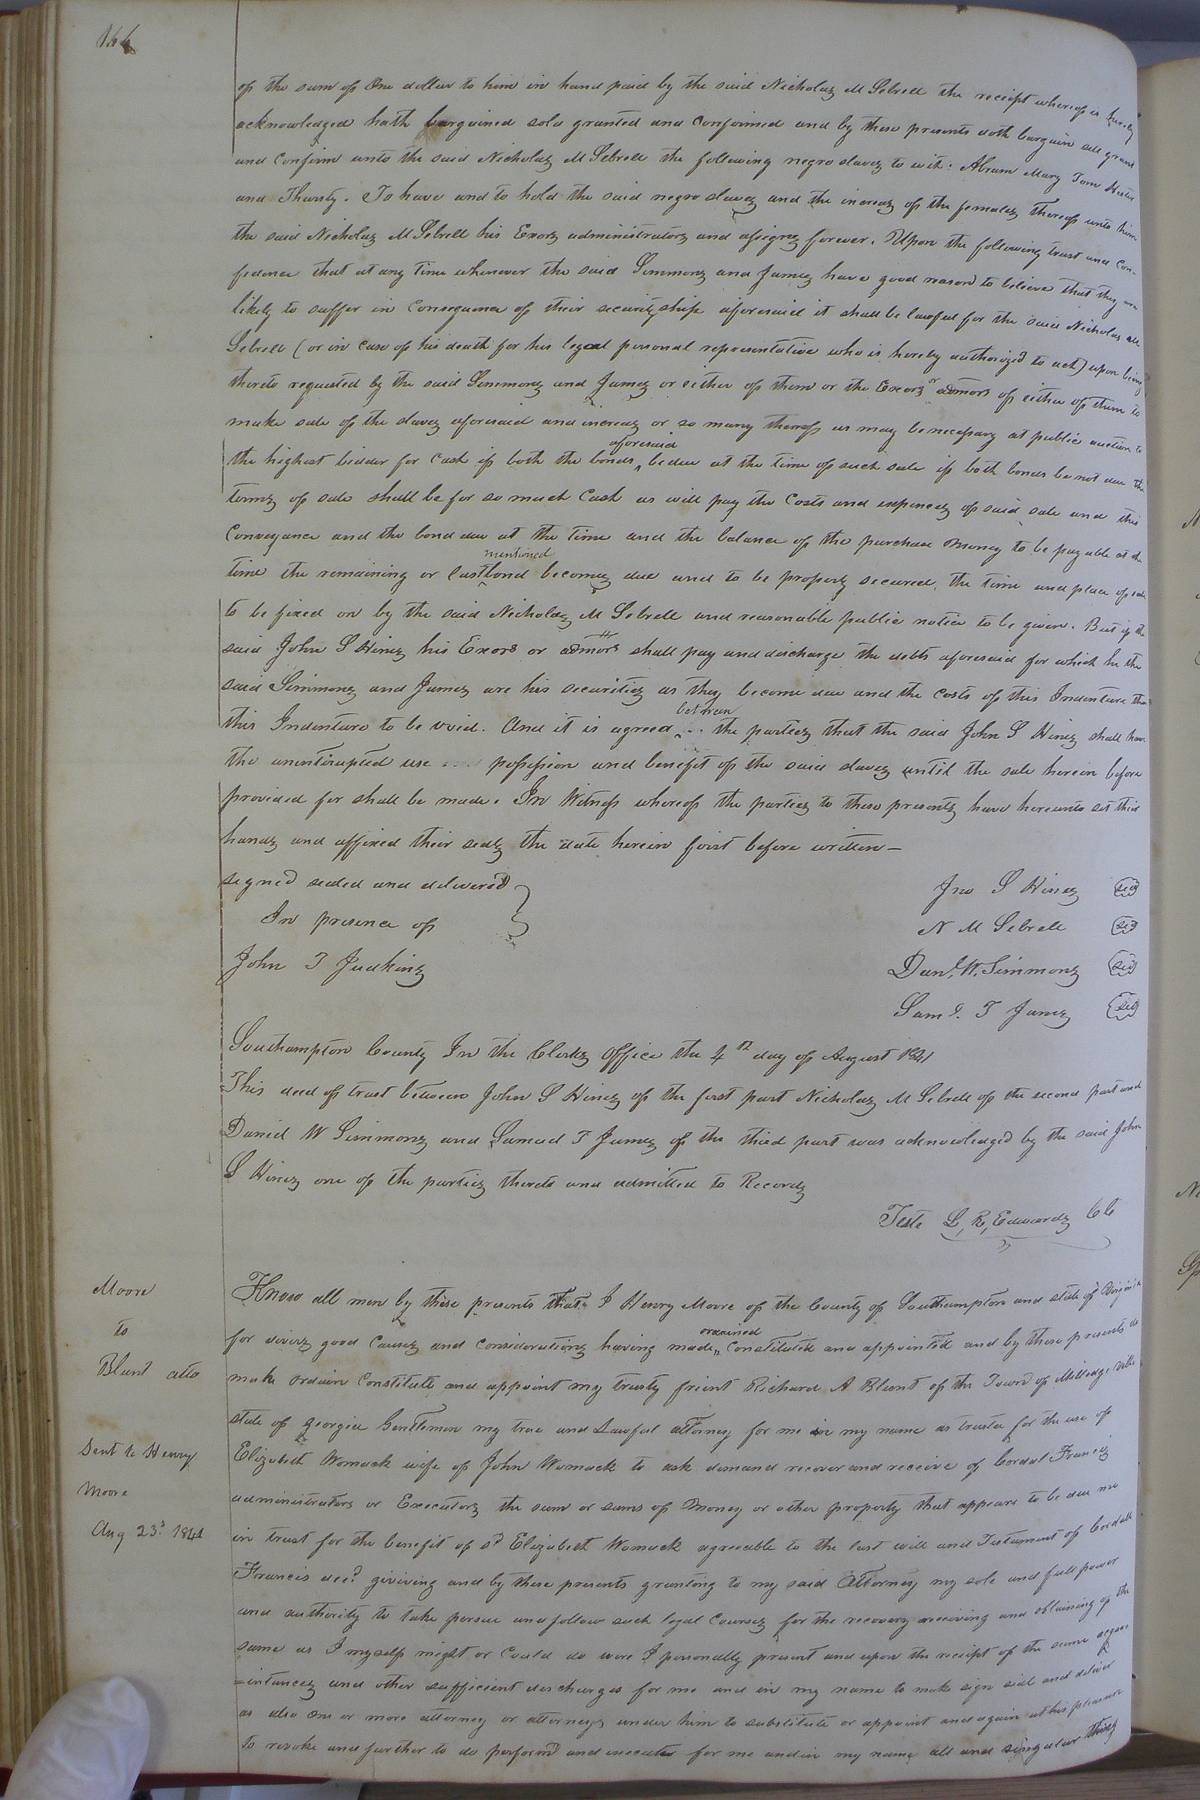 of the sum of One dollar to him in hand paid by the said Nicholas M Sebrell the receipt whereof is hereby
acknowledged hath bargained sold granted and confirmed and by these presents doth bargain sell grant
and confirm unto the said Nicholas M Sebrell the following negro slaves to wit: Abram Mary Tom Hester
and Thursty. To have and to hold the said negro slaves and the increas of the females thereof unto him
the said Nicholas M Sebrell his Exors administrators and assigns forever. Upon the following trust and con-
fidence that at any time whenever the said Simmons and James have good reason to believe that they are
likely to suffer in consequence of their securityship aforesaid it shall be lawful for the said Nicholas M
Sebrell (or in case of his death for his legal personal representative who is hereby authorized to act) upon being
thereto requested by the said Simmons and James or either of them or the Exors or admors of either of them to
make sale of the slaves aforesaid and increas or so many thereof as may be necessary at public auction to
the highest bidder for cash if both the bonds aforesaid be due at the time of such sale if both bonds be not due the
terms of sale shall be for so much cash as will pay the costs and expences of said sale and this
conveyance and the bond due at the time and the balance of the purchase money to be payable at the
time the remaining or last mentioned bond becomes due and to be property secured. the time and place of sale
to be fixed on by the said Nicholas M Sebrell and reasonable public notice to be given. But if the
said John S Hines his Exors or admors shall pay and discharge the debts aforesaid for which he the
said Simmons and James are his securities as they become due and the costs of this Indenture then
this Indenture to be void. And it is agreed between the parties that the said John S Hines shall have
the uninterupted use possession and benefit of the said slaves until the sale herein before
provided for shall be made. In Witness whereof the parties to these presents have hereunto set their
hands and affixed their seals the date herein first before written —
signed sealed and delivered Jno S Hines seal
In presence of N M Sebrell seal
John T Judkins Danl. W. Simmons seal
Saml. T James seal
Southampton County In the Clerks Office the 4th day of August 1841
This deed of trust between John S Hines of the first part Nicholas M Sebrell of the second part and
Daniel W Simmons and Samuel T James of the third part was acknowledged by the said John
S Hines one of the parties thereto and admitted to Records
Teste L, R, Edwards Clk
Moore
to
Blunt atto
Sent to Henry
Moore
Aug 23d 1841
Know all men by these presents that I Henry Moore of the County of Southampton and state of Virginia
for divers good causes and considerations having made, ordained constituted and appointed and by these presents do
make ordain constitute and appoint my trusty frient Richard A Blunt of the Town of Milledge ville
state of georgia Gentleman my true and Lawful attorney for me in my name as trustee for the use of
Elizabeth Womack wife of John Womack to ask demand recover and receive of Cordal Francis
administrators or Executors the sum or sums of money or other property that appears to be due me
in trust for the benefit of sd Elizabeth Womack agreeable to the last will and Testament of Cordall
Francis decd. giviving and by these presents granting to my said Attorney my sole and full power
and authority to take persue and follow such legal courses for the recovery receiving and obtaining of the
same as I myself might or could do were I personally present and upon the receipt of the same acqua
=intances and other sufficient discharges for me and in my name to make sign seal and deliver
as also one or more attorney or attorneys under him to substitute or appoint and again at his pleasure
to revoke and further to do perform and execute for me and in my name all and singular things